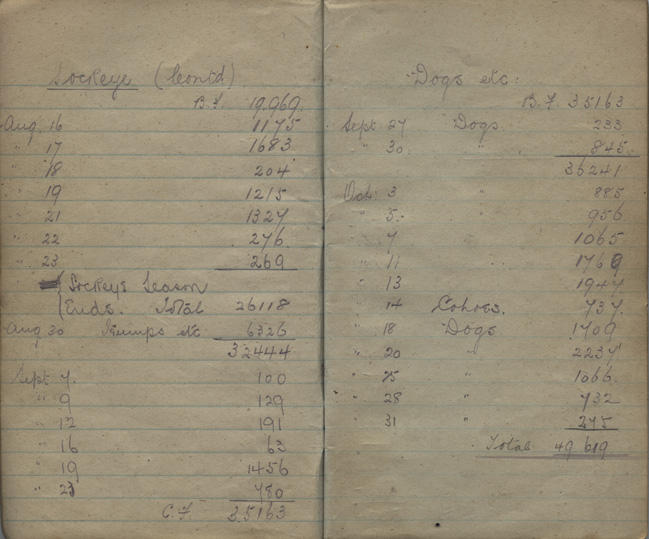 Sockeye (Contd)
B.F. 19.969.
Aug. 16 1175
" 17 1683
" 18 204
" 19 1215
" 21 1327
" 22 276
" 23 269
Sockeye Season
Ends. Total 26118
Aug 30 Humps etc 6326
32444
Sept 7. 100
" 9 129
" 12 191
" 16 63
" 19 1456
" 23 780
C.F. 35163
Dogs etc.
B.F. 35163
Sept 27 Dogs. 233
" 30 " 845.
36241
Oct. 3 " 885
" 5. " 956
" 7 " 1065
" 11 " 1769
" 13 " 1947
" 14 Cohoes. 737.
" 18 Dogs 1709
" 20 " 2237
" 25 " 1066.
" 28 " 732
" 31 " 275
Total 49619